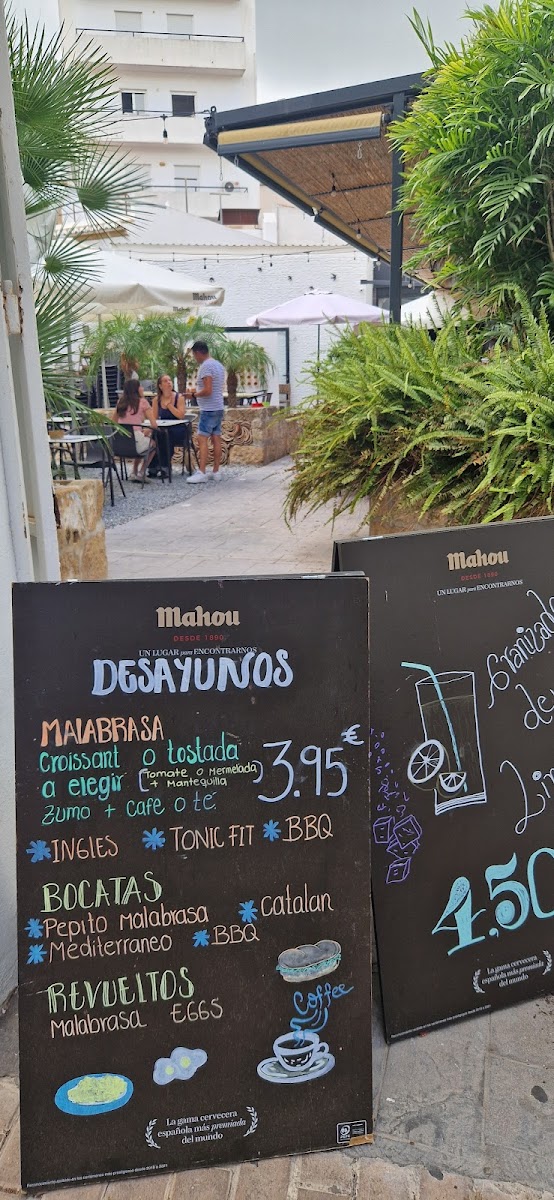 mahou
mahou
mahou
DESDE 1890
UN LUGAR para ENCONTRARNOS
DESAYUNOS
MALABRASA
Croissant o tostada
a elegir (Tomate o Mermelada
+ Mantequilla)
3.95 €
Zumo + cafe o te
* INGLES * TONIC FIT * BBQ
BOCATAS
* Pepito Malabrasa * Catalan
* Mediterraneo * BBQ
REVUELTOS
Malabrasa EGGS
Coffee
La gama cervecera
española más premiada
del mundo
mahou
DESDE 1890
UN LUGAR para ENCONTRARNOS
Granizado
de
4.50
La gama cervecera
española más premiada
del mundo